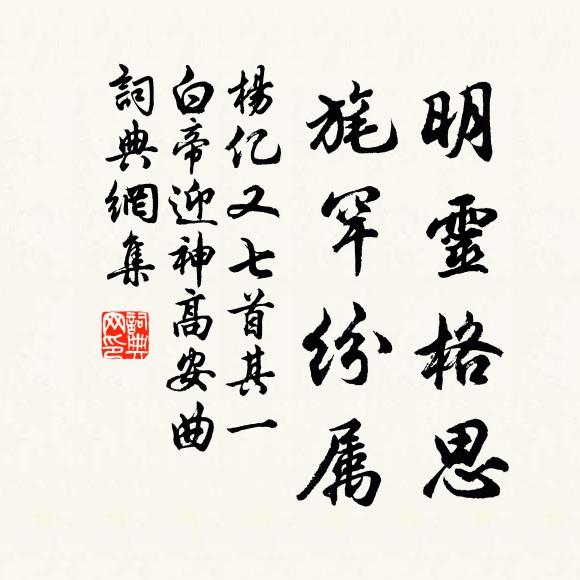 明靈格思
旄罕纷属
楊亿又七首其一
白帝迎神高安曲
詞典網集
詞典
网印